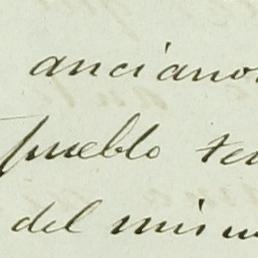 anciano
pueblo te
del mism